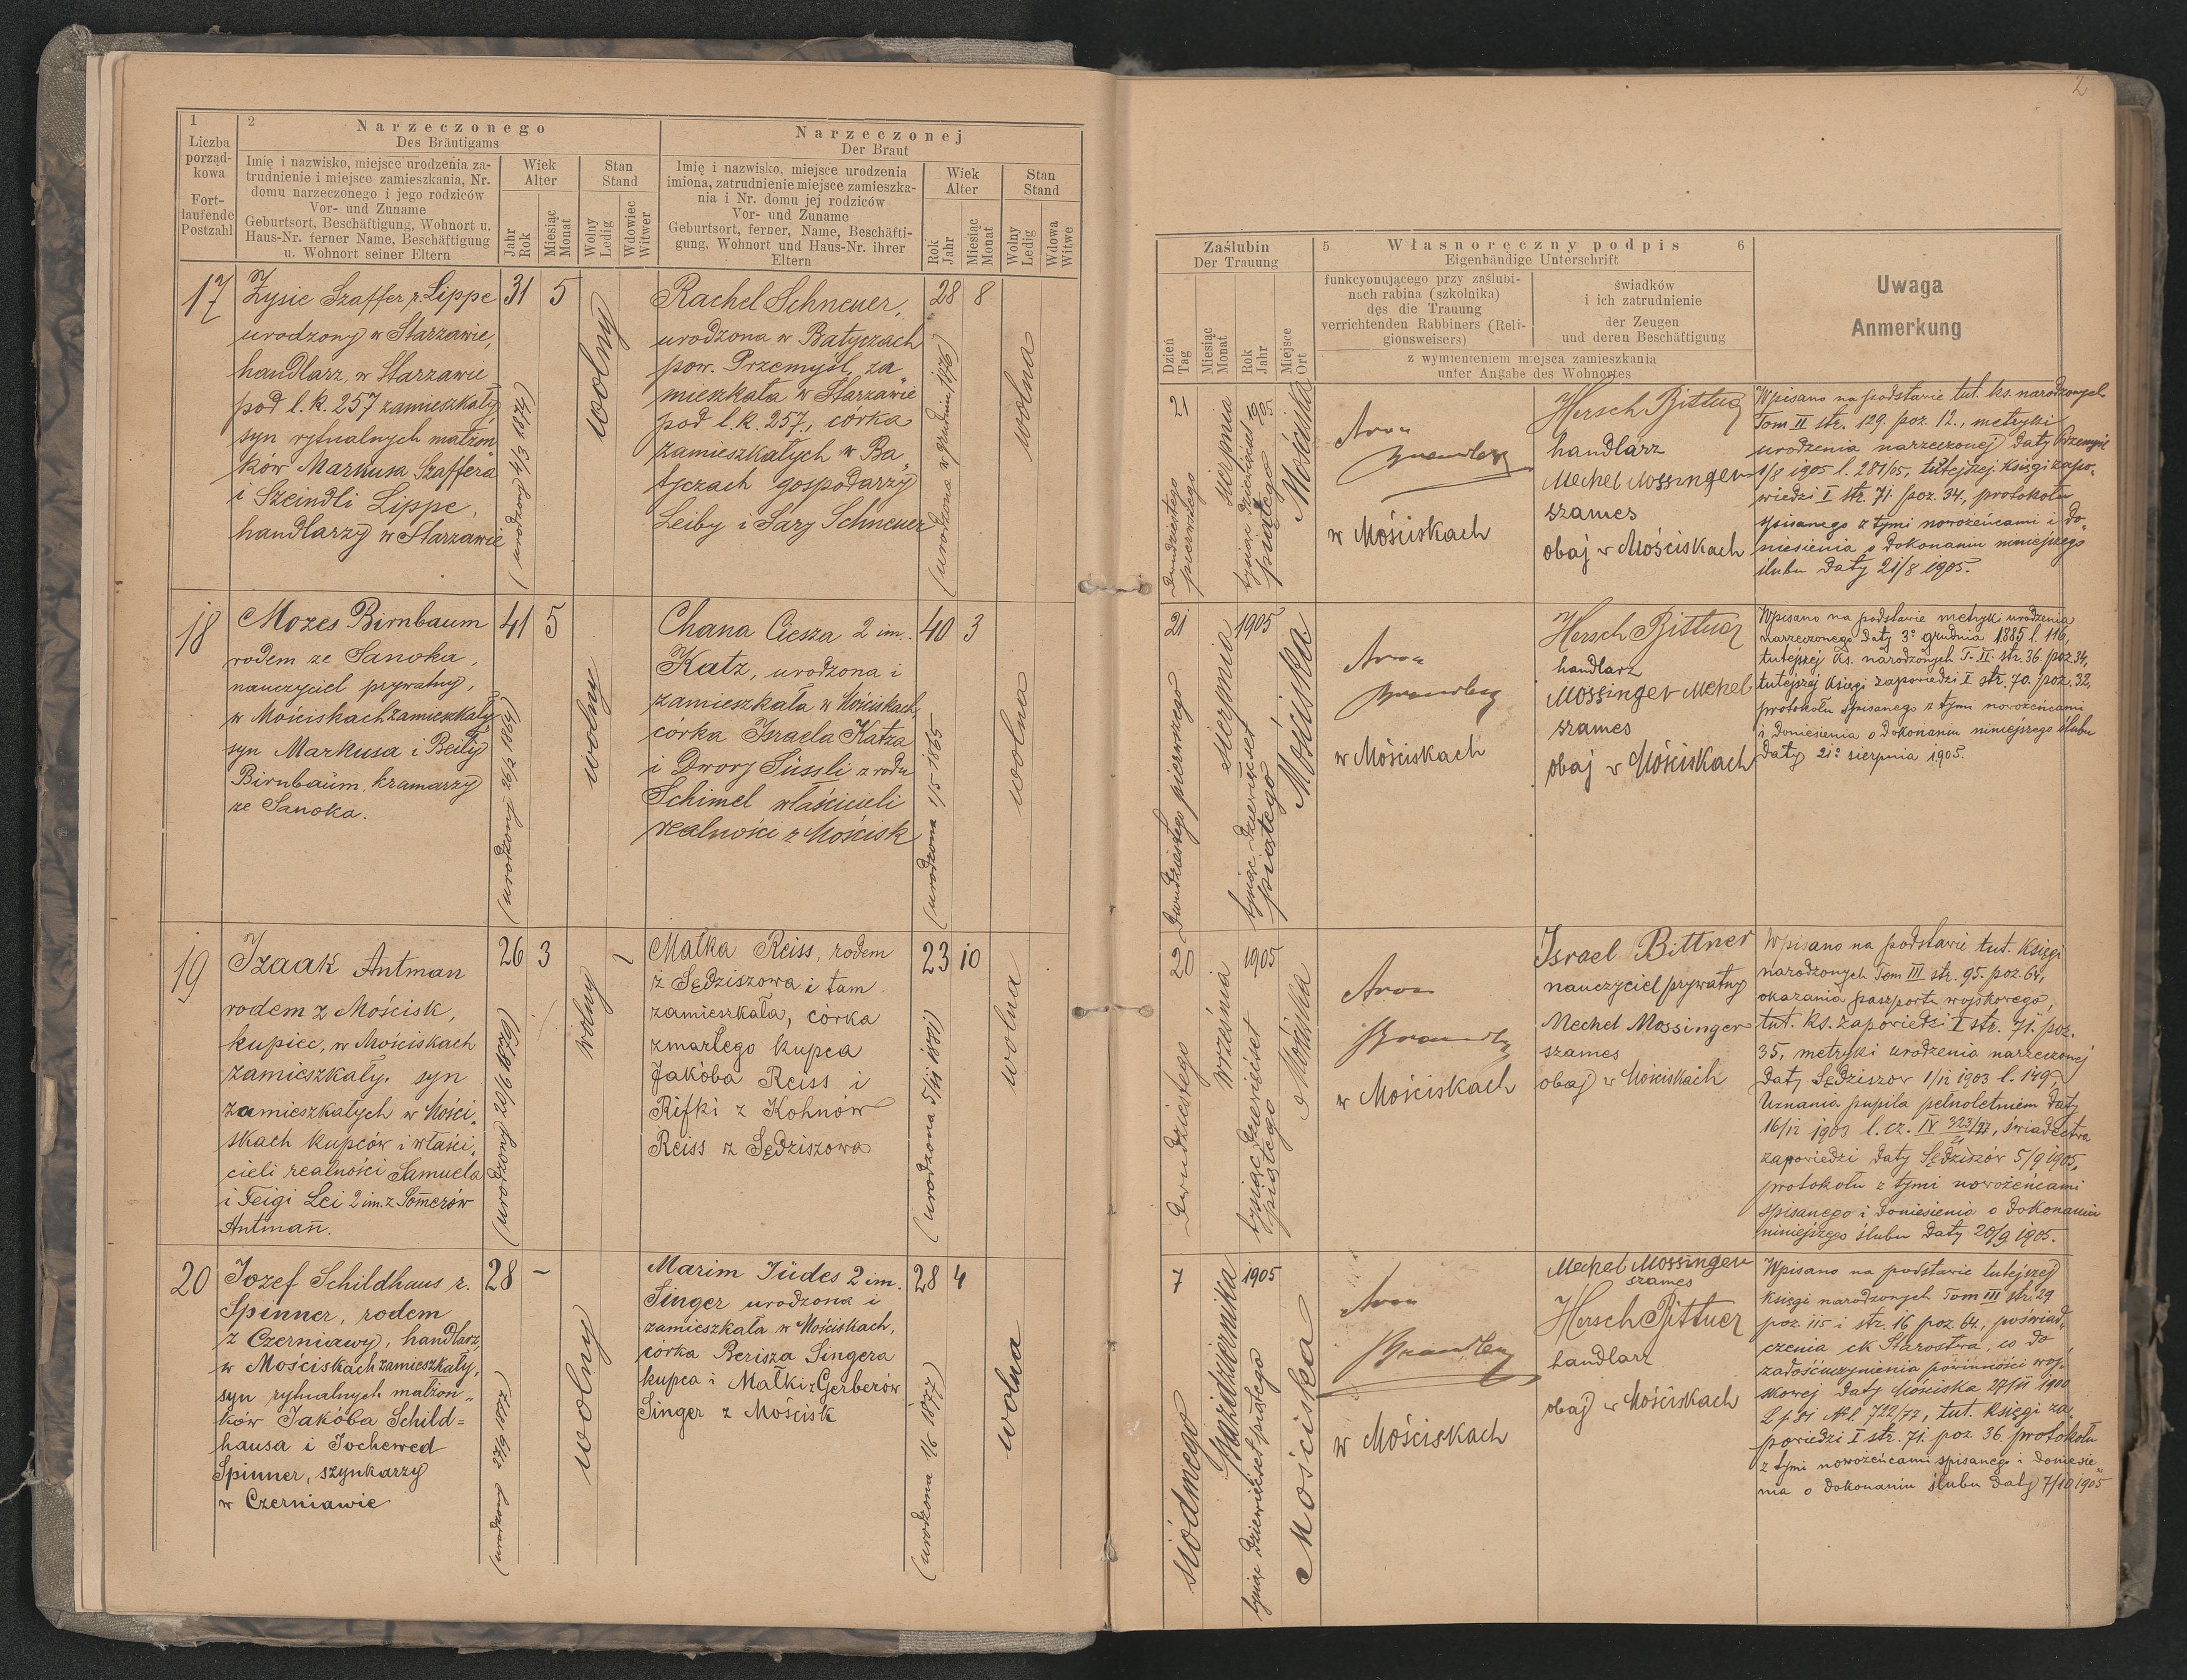 2
1
Liczba
porząd-
kowa
Fort-
laufende
Postzahl
2
Narzeczonego
Des Bräutigams
Imię i nazwisko, miejsce urodzenia za-
trudnienie i miejsce zamieszkania, Nr.
domu narzeczonego i jego rodziców
Vor- und Zuname
Geburtsort, Beschäftigung, Wohnort u.
Haus-Nr. ferner Name, Beschäftigung
u. Wohnort seiner Eltern
Wiek
Alter
Jahr
Rok
Miesiąc
Monat
Stan
Stand
Wolny
Ledig
Wdowiec
Witwer
Narzeczonej
Der Braut
Imię i nazwisko, miejsce urodzenia
imiona, zatrudnienie miejsce zamieszka-
nia i Nr. domu jej rodziców
Vor- und Zuname
Geburtsort, ferner, Name, Beschäfti-
gung, Wohnort und Haus-Nr. ihrer
Eltern
Wiek
Alter
Rok
Jahr
Miesiąc
Monat
Stan
Stand
Wolny
Ledig
Wdowa
Witwe
Zaślubin
Der Trauung
Dzień
Tag
Miesiąc
Monat
Rok
Jahr
Miejsce
Ort
5
Własnoręczny podpis
6
Eigenhändige Unterschrift
funkcyonującego przy zaślubi-
nach rabina (szkolnika)
des die Trauung
verrichtenden Rabbiners (Reli-
gionsweisers)
świadków
i ich zatrudnienie
der Zeugen
und deren Beschäftigung
z wymienieniem miejsca zamieszkania
unter Angabe des Wohnortes
Uwaga
Anmerkung
17
Zysie Szaffer r. Lippe
urodzony w Starzawie,
handlarz, w Starzawie
pod l. k. 257 zamieszkały,
syn rytualnych małżon
ków Markusa Szaffera
i Szeindli Lippe,
handlarzy w Starzawie
31
(urodzony 4/3 1874)
5
wolny
Rachel Schneuer,
urodzona w Batyczach
pow. Przemyśl, za
mieszkała w Starzawie
pod l. k. 257, córka
zamieszkałych w Ba
tyczach gospodarzy
Leiby i Sary Schneuer
28
(urodzona w grudniu 1876)
8
wolna
21
dwudziestego
pierwszego
sierpnia
1905
tysiąc dziewięćset
piątego
Mościska
Aron
w Mościskach
Hersch Bittner
handlarz
Mechel Mossinger
szames
obaj w Mościskach
Wpisano na podstawie tut. ks. narodzonych
Tom II str. 129. poz. 12., metryki
urodzenia narzeczonej daty Przemyśl
1/8 1905 l. 281/05, tutejszej księgi zapo-
wiedzi I str. 71. poz. 34., protokołu
spisanego z tymi nowożeńcami i do-
niesienia o dokonaniu niniejszego
ślubu daty 21/8 1905.
18
Mozes Birnbaum
rodem ze Sanoka,
nauczyciel prywatny,
w Mościskach zamieszkały
syn Markusa i Beily
Birnbaum, kramarzy
ze Sanoka.
41
(urodzony 26/2 1864)
5
wolny
Chana Ciesza 2 im.
Katz, urodzona i
zamieszkała w Mościskach,
córka Israela Katza
i Dwory Süssli z rodu
Schimel właścicieli
realności z Mościsk
40
(urodzona 1/5 1865
3
wolna
21
dwudziestego pierwszego
sierpnia
1905
tysiąc dziewięćset
piątego
Mościska
Aron
w Mościskach
Hersch Bittner
handlarz
Mossinger Mechel
szames
obaj w Mościskach
Wpisano na podstawie metryki urodzenia
narzeczonego daty 3° grudnia 1885 l. 116,
tutejszej ks. narodzonych T. II. str. 36. poz. 34,
tutejszej księgi zapowiedzi I str. 70. poz. 32,
protokołu spisanego z tymi nowożeńcami
i doniesienia o dokonaniu niniejszego ślubu
daty 21° sierpnia 1905.
19
Izaak Antman
rodem z Mościsk,
kupiec, w Mościskach
zamieszkały, syn
zamieszkałych w Mości,
skach kupców i właści,
cieli realności Samuela
i Feigi Lei 2 im. z Somerów
Antmann.
26
(urodzony 20/6 1879)
3
wolny
Małka Reiss, rodem
z Sędziszowa i tam
zamieszkała, córka
zmarłego kupca
Jakóba Reiss i
Rifki z Kohnów
Reiss z Sędziszowa
23
(urodzona 5/11 1881)
10
wolna
20
dwudziestego
września
1905
tysiąc dziewięćset
piątego
Mościska
Aron
w Mościskach
Israel Bittner
nauczyciel prywatny
Mechel Mossinger
szames
obaj w Mościskach
Wpisano na podstawie tut. księgi
narodzonych Tom III str. 95. poz. 64,
okazania paszportu wojskowego,
tut. ks. zapowiedzi I str. 71. poz.
35, metryki urodzenia narzeczonej
daty Sędziszów 1/12 1903 l. 149,
Uznania pupila pełnoletniem daty
16/12 1903 l. cz. IV 323/97, świadectwa
21
zapowiedzi daty Sędziszów 5/9 1905,
protokołu z tymi nowożeńcami
spisanego i doniesienia o dokonaniu
niniejszego ślubu daty 20/9 1905.
20
Jozef Schildhaus r.
Spinner, rodem
z Czerniawy, handlarz,
w Mościskach zamieszkały,
syn rytualnych małżon-
ków Jakóba Schild=
hausa i Jochewed
Spinner, szynkarzy
w Czerniawie
28
(urodzony 27/9 1877)
-
wolny
Marim Jüdes 2 im.
Singer urodzona i
zamieszkała w Mościskach,
córka Berisza Singera
kupca i Małki z Gerberów
Singer z Mościsk
28
(urodzona 1/6 1877)
4
wolna
7
siódmego
Października
1905
tysiąc dziewięćset piątego
Mościska
Aron
w Mościskach
Mechel Mossinger
szames
Hersch Bittner
handlarz
obaj w Mościskach
Wpisano na podstawie tutejszej
księgi narodzonych Tom III str. 29
poz. 115 i str. 16 poz. 64, poświad,
czenia ck Starostwa, co do
zadośćuczynienia powinności woj,
skowej daty Mościska 27/11 1900
722/77, tut. księgi za,
powiedzi I str. 71. poz. 36. protokołu
z tymi nowożeńcami spisanego i doniesie,
nia o dokonaniu ślubu daty 7/10 1905